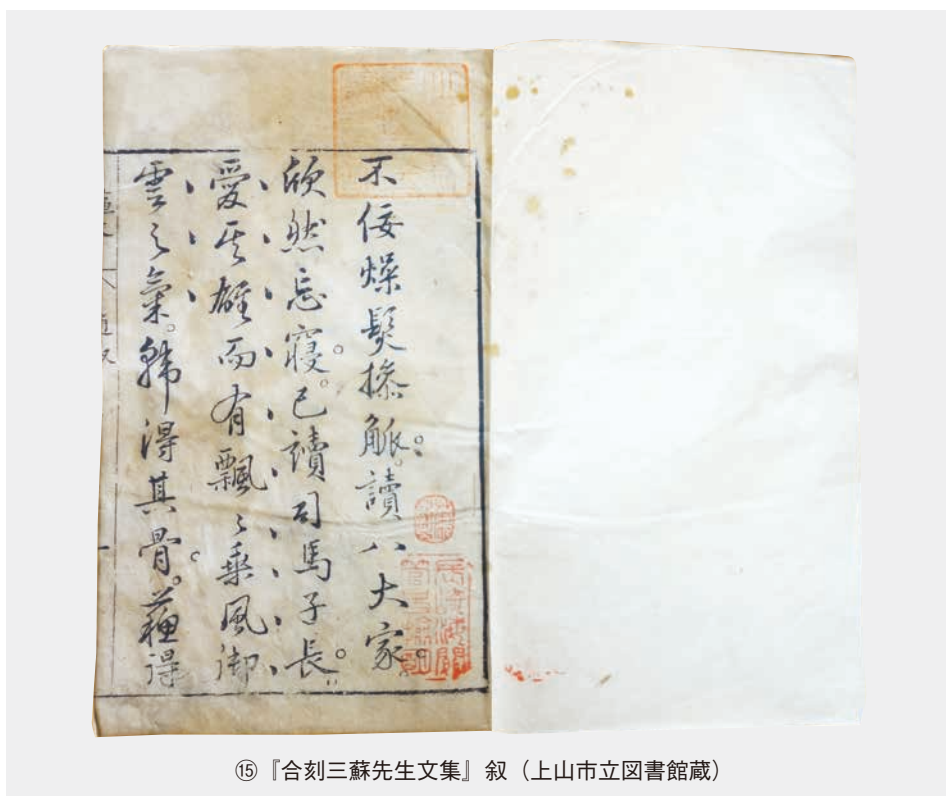 不佞燥髮操觚。讀八大家。
頎然忘寢。已讀司馬子長。
愛其雄而有飄〻乗風御
雲之氣。韓得其骨。蘇得
⑮『合刻三蘇先生文集』叙（上山市立図書館蔵）